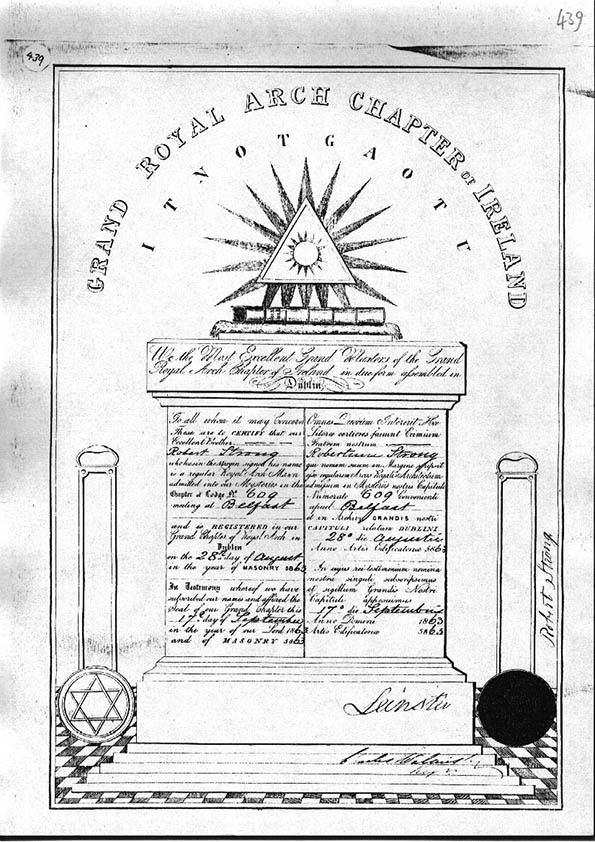 439
439
GRAND ROYAL ARCH CHAPTER OF IRELAND
I T N O T G A O T U
We the Most Excellent Grand Masters of the Grand
Royal Arch Chapter of Ireland in due form assembled in
Dublin
To all whom it may Concern
These are to CERTIFY that our
Excellent Brother
Robert Strong
who has in the Margin signed his name
is a regular Royal Arch Mason
admitted into our Mysteries in the
Chapter of Lodge No. 609
meeting at Belfast
and is REGISTERED in our
Grand Chapter of Royal Arch in
Dublin
on the 28th day of August
in the year of MASONRY 5863
In Testimony whereof we have
subscribed our names and affixed the
Seal of our Grand Chapter this
17th day of September
in the year of our Lord 1863
and of MASONRY 5863
Omnes Quorum Intererit Hoc
nostrum
Robertum Strong
qui nomen suum in Margine
admissum in Mysteriis nostri Capituli
Numerato 609 Convenienti
apud Belfast
et in Archivis GRANDIS nostri
CAPITULI relatum DUBLINI
28o die Augustii
Anno Artis Edificatoriæ 5863
In cujus rei testimonium nomina
nostri singuli subscripsimus
et sigillum Grandis Nostri
Capituli apposuimus
17o die Septembris
Anno Domini 1863
Artis Edificatoriæ 5863
Robert Strong
Leinster